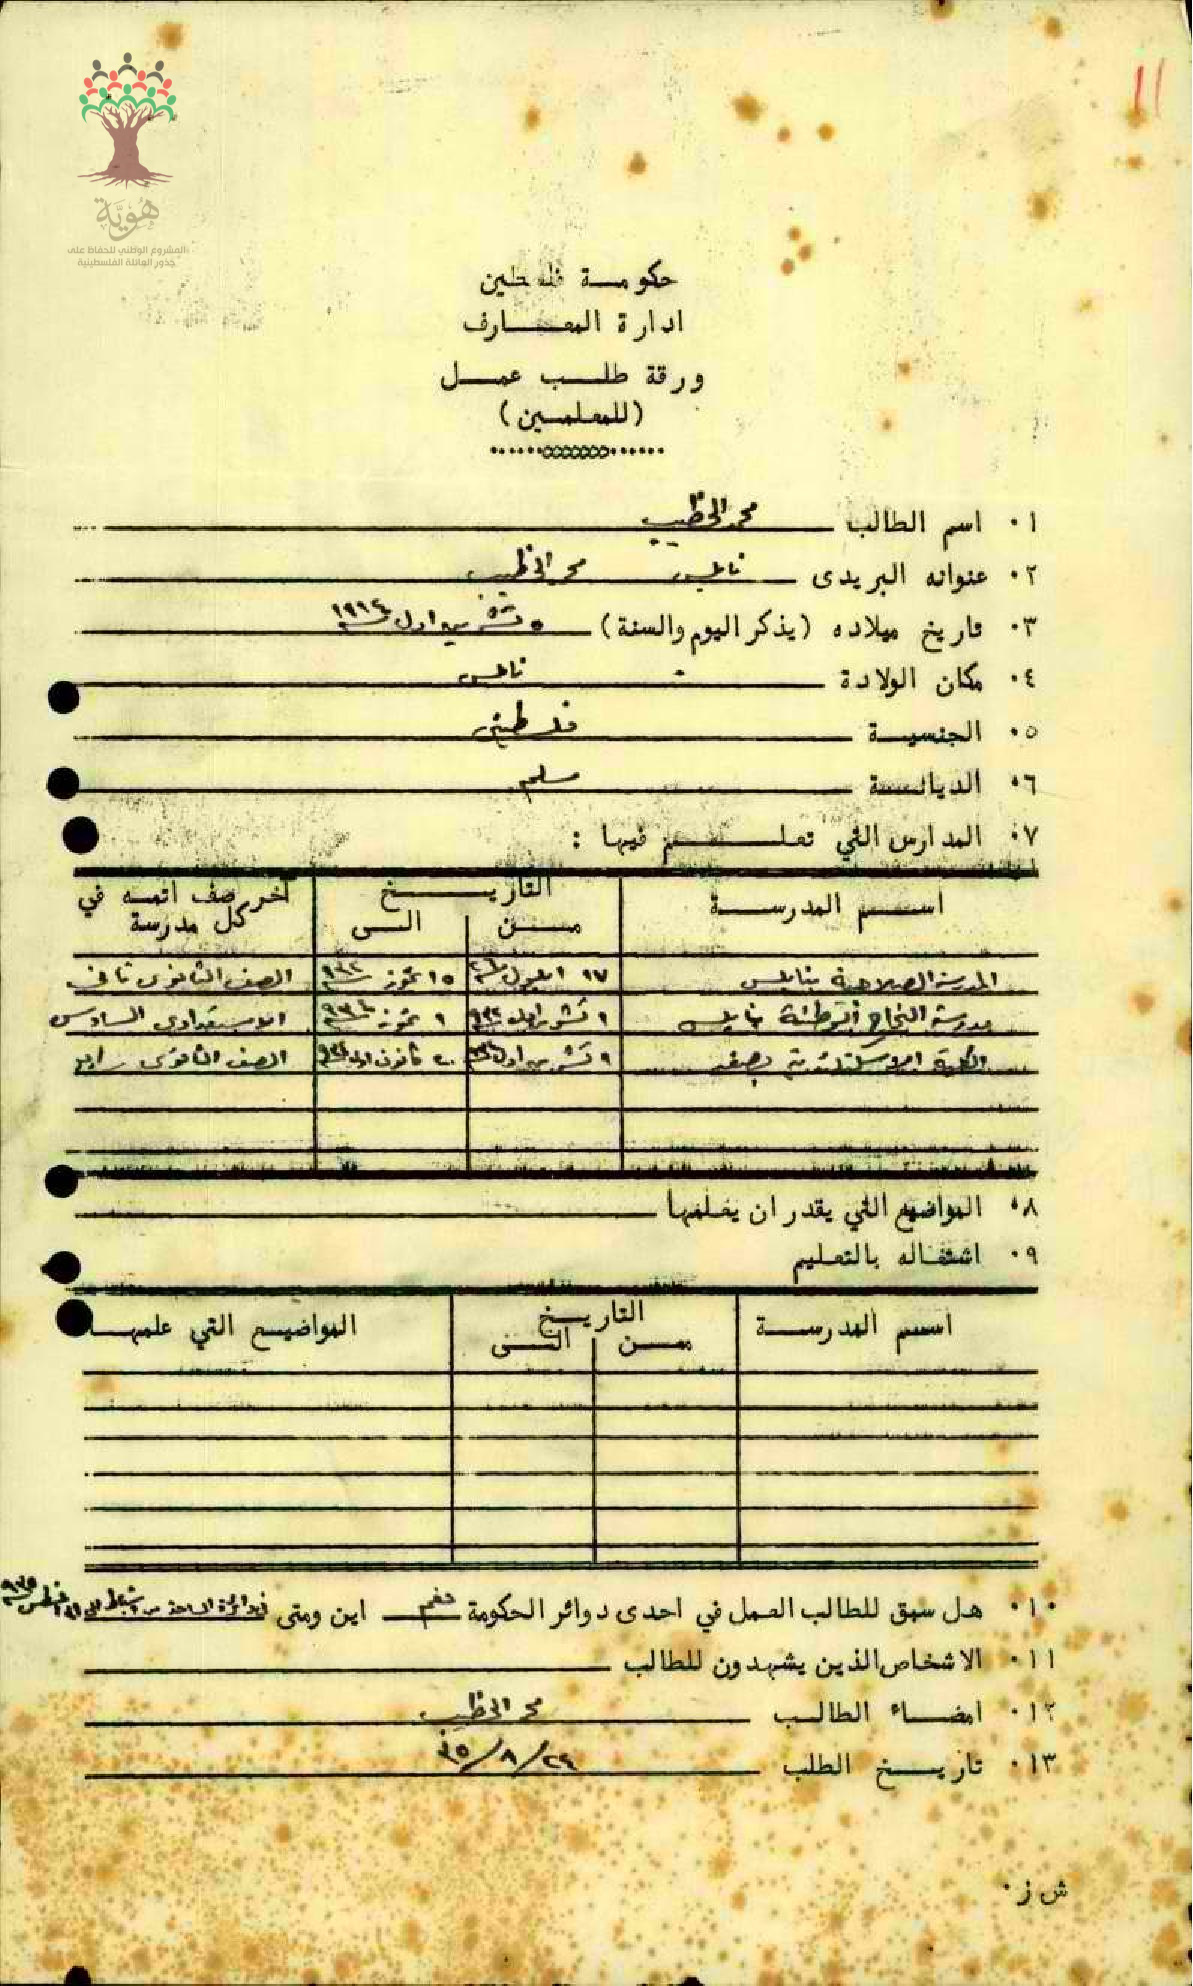 11
هُوِيَّة
المشروع الوطني للحفاظ على
جذور العائلة الفلسطينية
حكومة فلسطين
ادارة المعارف
ورقة طلب عمل
(للمعلمين)
١٠ اسم الطالب محمد الخطيب
٢٠ عنوانه البريدى نابلس محمد الخطيب
٣٠ تاريخ ميلاده (يذكر اليوم والسنة) ٥ تشرين اول سنة ١٩١٤
٤٠ مكان الولادة نابلس
٥٠ الجنسية فلسطيني
٦٠ الديانة مسلم
٧٠ المدارس التي تعلم فيها :
اسم المدرسة التاريخ آخر صف اتمه في
من الى كل مدرسة
المدرسة الصلاحية بنابلس ١٧ ايلول ١٥ تموز ٩٣٢ الصف الثانوى ثاني
مدرسة النجاح الوطنية بنابلس ١ تشرين اول ٩٣٢ ١ تموز الاستعدادى السادس
الكلية الاسكتلندية بصفد ١ تشرين اول كانون الصف الثانوى رابع
٨٠ المواضيع التي يقدر ان يعلمها
٩٠ اشتغاله بالتعليم
اسم المدرسة التاريخ المواضيع التي علمها
من الى
١٠٠ هل سبق للطالب العمل في احدى دوائر الحكومة نعم اين ومتى في دائرة المساحة من شباط الى اغسطس ٩٣٥
١١٠ الاشخاص الذين يشهدون للطالب
١٢٠ امضاء الطالب محمد الخطيب
١٣٠ تاريخ الطلب ٣٥/٨/٢٤
ش ز٠